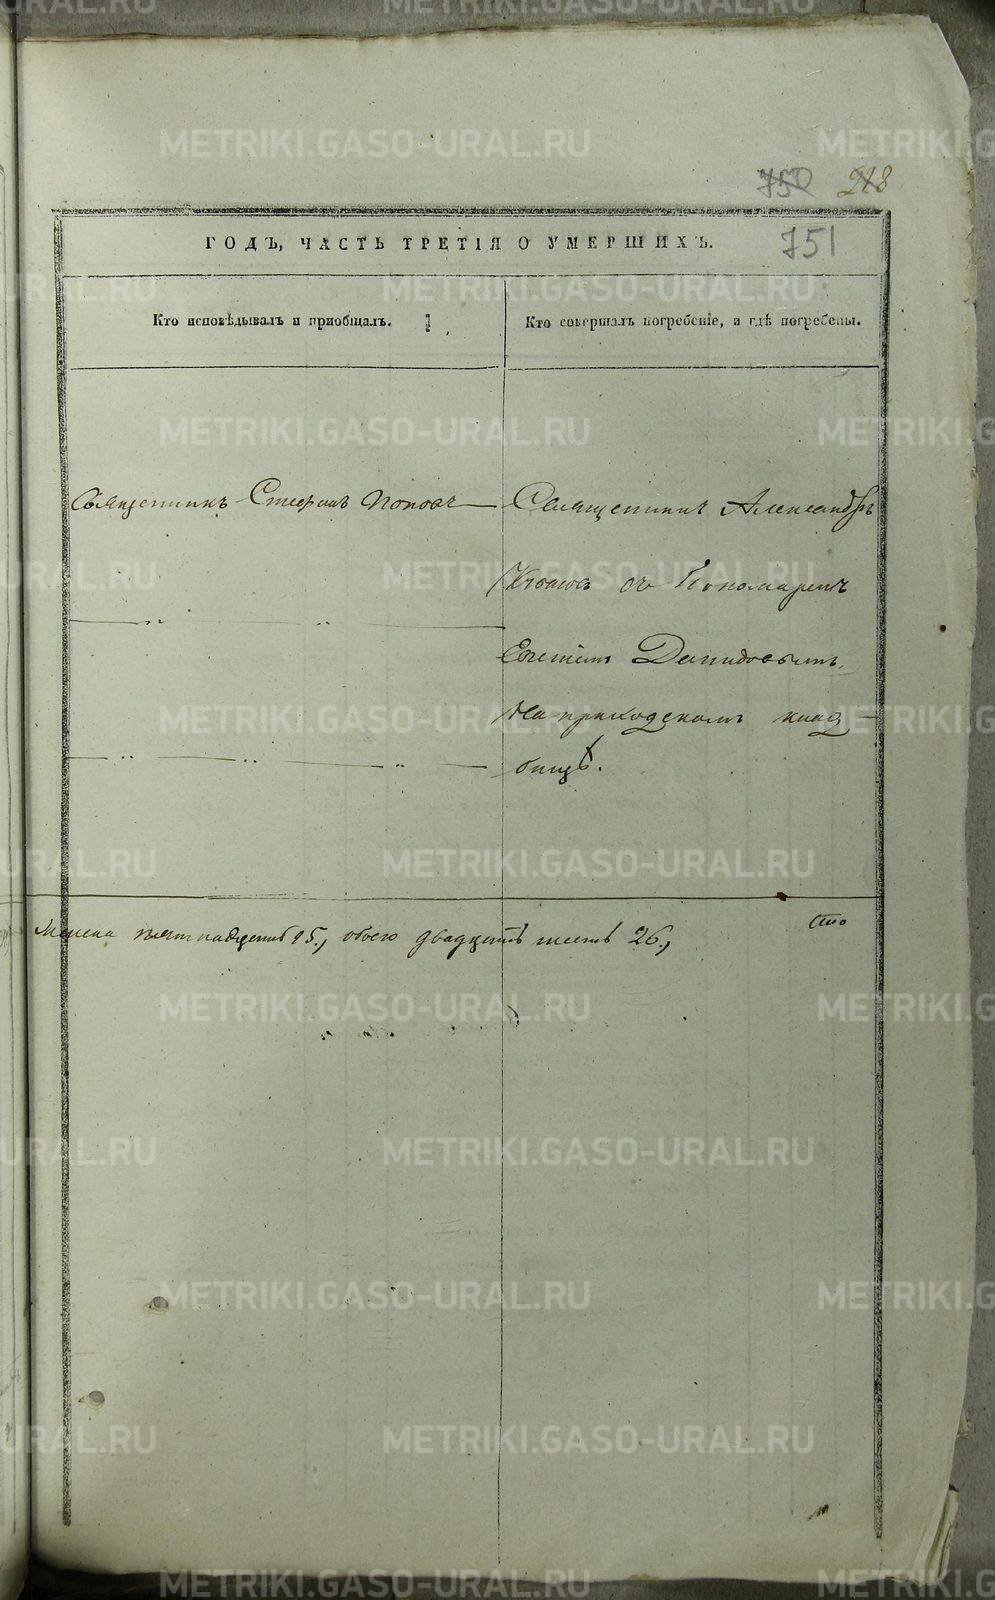 METRIKI.GASO-URAL.RU
750 218
ГОДЪ, ЧАСТЬ ТРЕТІЯ О УМЕРШИХЪ.
751
Кто исповѣдывалъ и приобщалъ.
Кто совершалъ погребеніе, и гдѣ погребены.
Священникъ Стефанъ Поповъ
Священникъ Александръ
съ Пономаремъ
Давидовымъ
На приходскомъ клад-
бищѣ.
женска пятнадцать 15., обоего двадцать шесть 26.,